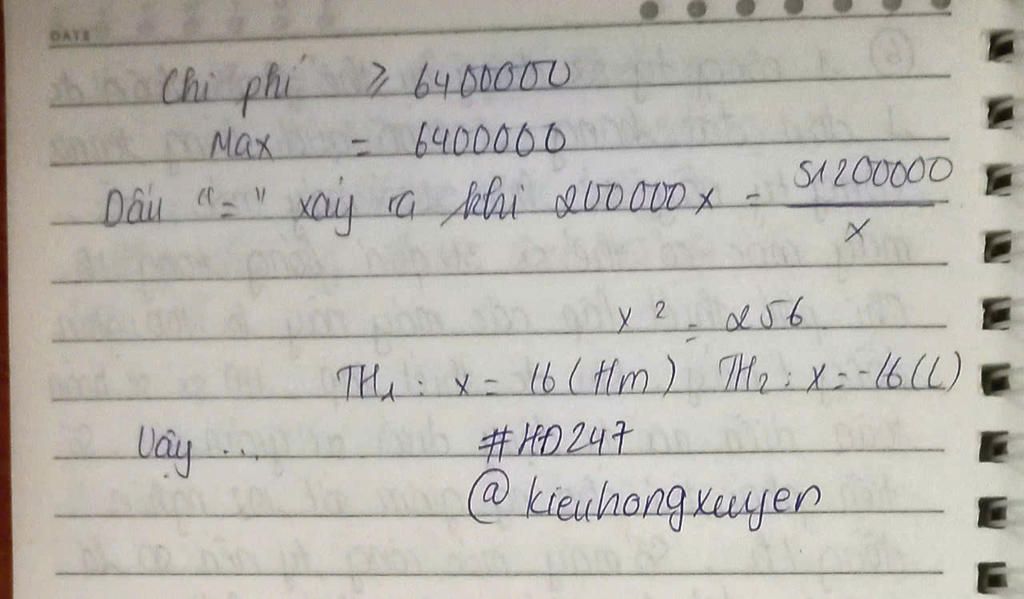 DATE
Chi phí ≥ 6400000
Max = 6400000
Dấu "=" xảy ra khi 200000x = 51200000/x
x² = 256
TH₁ : x = 16 (tm) TH₂ : x = -16 (L)
Vậy ...
#HD247
@kieuhongxuyen